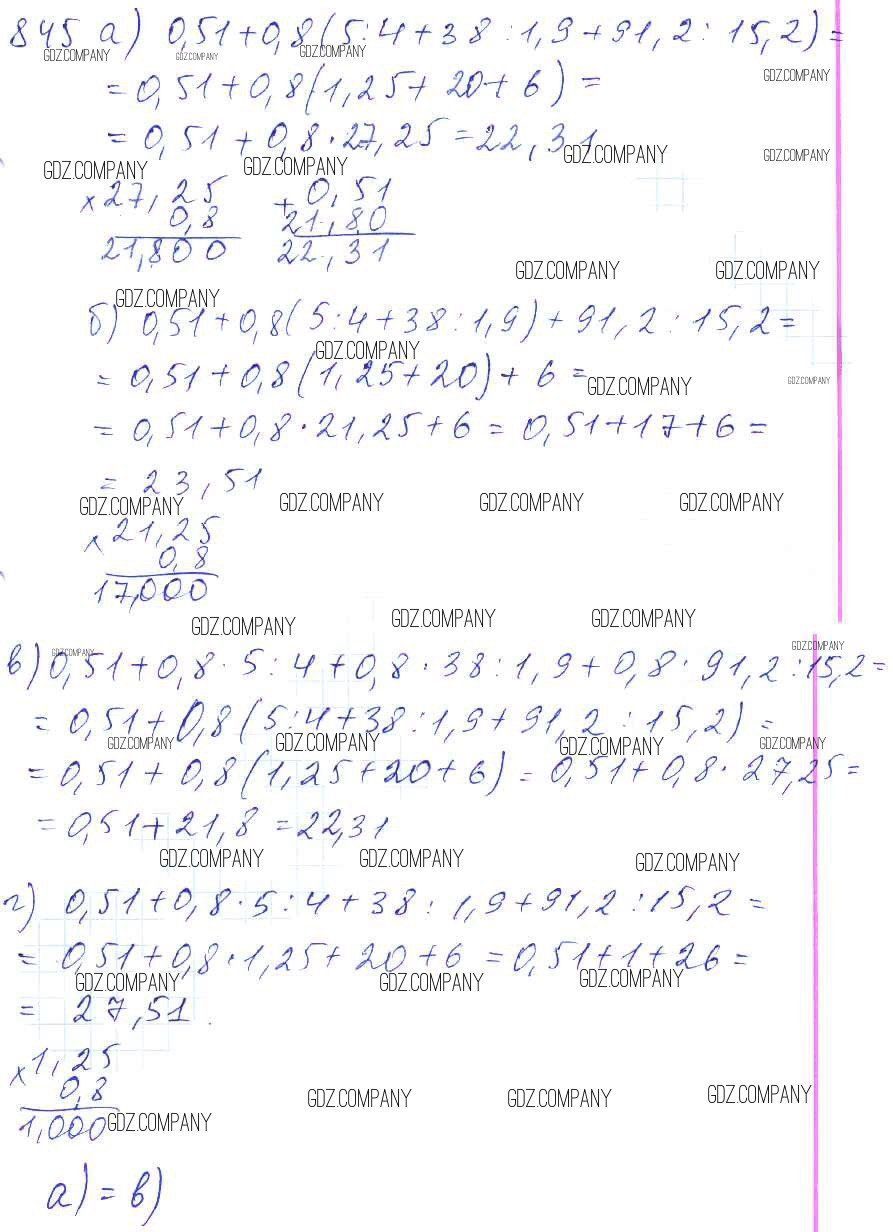 845 а) 0,51+0,8(5:4+38:1,9+91,2:15,2)=
GDZ.COMPANY GDZ.COMPANY GDZ.COMPANY
=0,51+0,8(1,25+20+6)=
GDZ.COMPANY
=0,51+0,8·27,25=22,31
GDZ.COMPANY GDZ.COMPANY GDZ.COMPANY GDZ.COMPANY
×27,25 +0,51
0,8 21,80
21,800 22,31
GDZ.COMPANY GDZ.COMPANY
GDZ.COMPANY
б) 0,51+0,8(5:4+38:1,9)+91,2:15,2=
GDZ.COMPANY
=0,51+0,8(1,25+20)+6=
GDZ.COMPANY GDZ.COMPANY
=0,51+0,8·21,25+6=0,51+17+6=
=23,51
GDZ.COMPANY GDZ.COMPANY GDZ.COMPANY GDZ.COMPANY
×21,25
0,8
17,000
GDZ.COMPANY GDZ.COMPANY GDZ.COMPANY
GDZ.COMPANY GDZ.COMPANY
в) 0,51+0,8·5:4+0,8·38:1,9+0,8·91,2:15,2=
=0,51+0,8(5:4+38:1,9+91,2:15,2)=
GDZ.COMPANY GDZ.COMPANY GDZ.COMPANY GDZ.COMPANY
=0,51+0,8(1,25+20+6)=0,51+0,8·27,25=
=0,51+21,8=22,31
GDZ.COMPANY GDZ.COMPANY GDZ.COMPANY
г) 0,51+0,8·5:4+38:1,9+91,2:15,2=
=0,51+0,8·1,25+20+6=0,51+1+26=
GDZ.COMPANY GDZ.COMPANY GDZ.COMPANY
=27,51.
×1,25
0,8
GDZ.COMPANY GDZ.COMPANY GDZ.COMPANY
1,000
GDZ.COMPANY
а)=в)